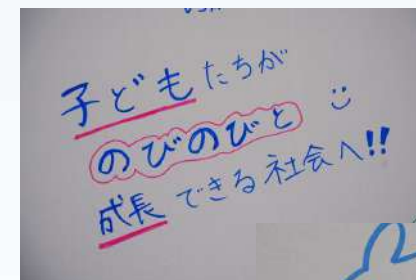 子どもたちが
のびのびと
成長できる社会へ!!